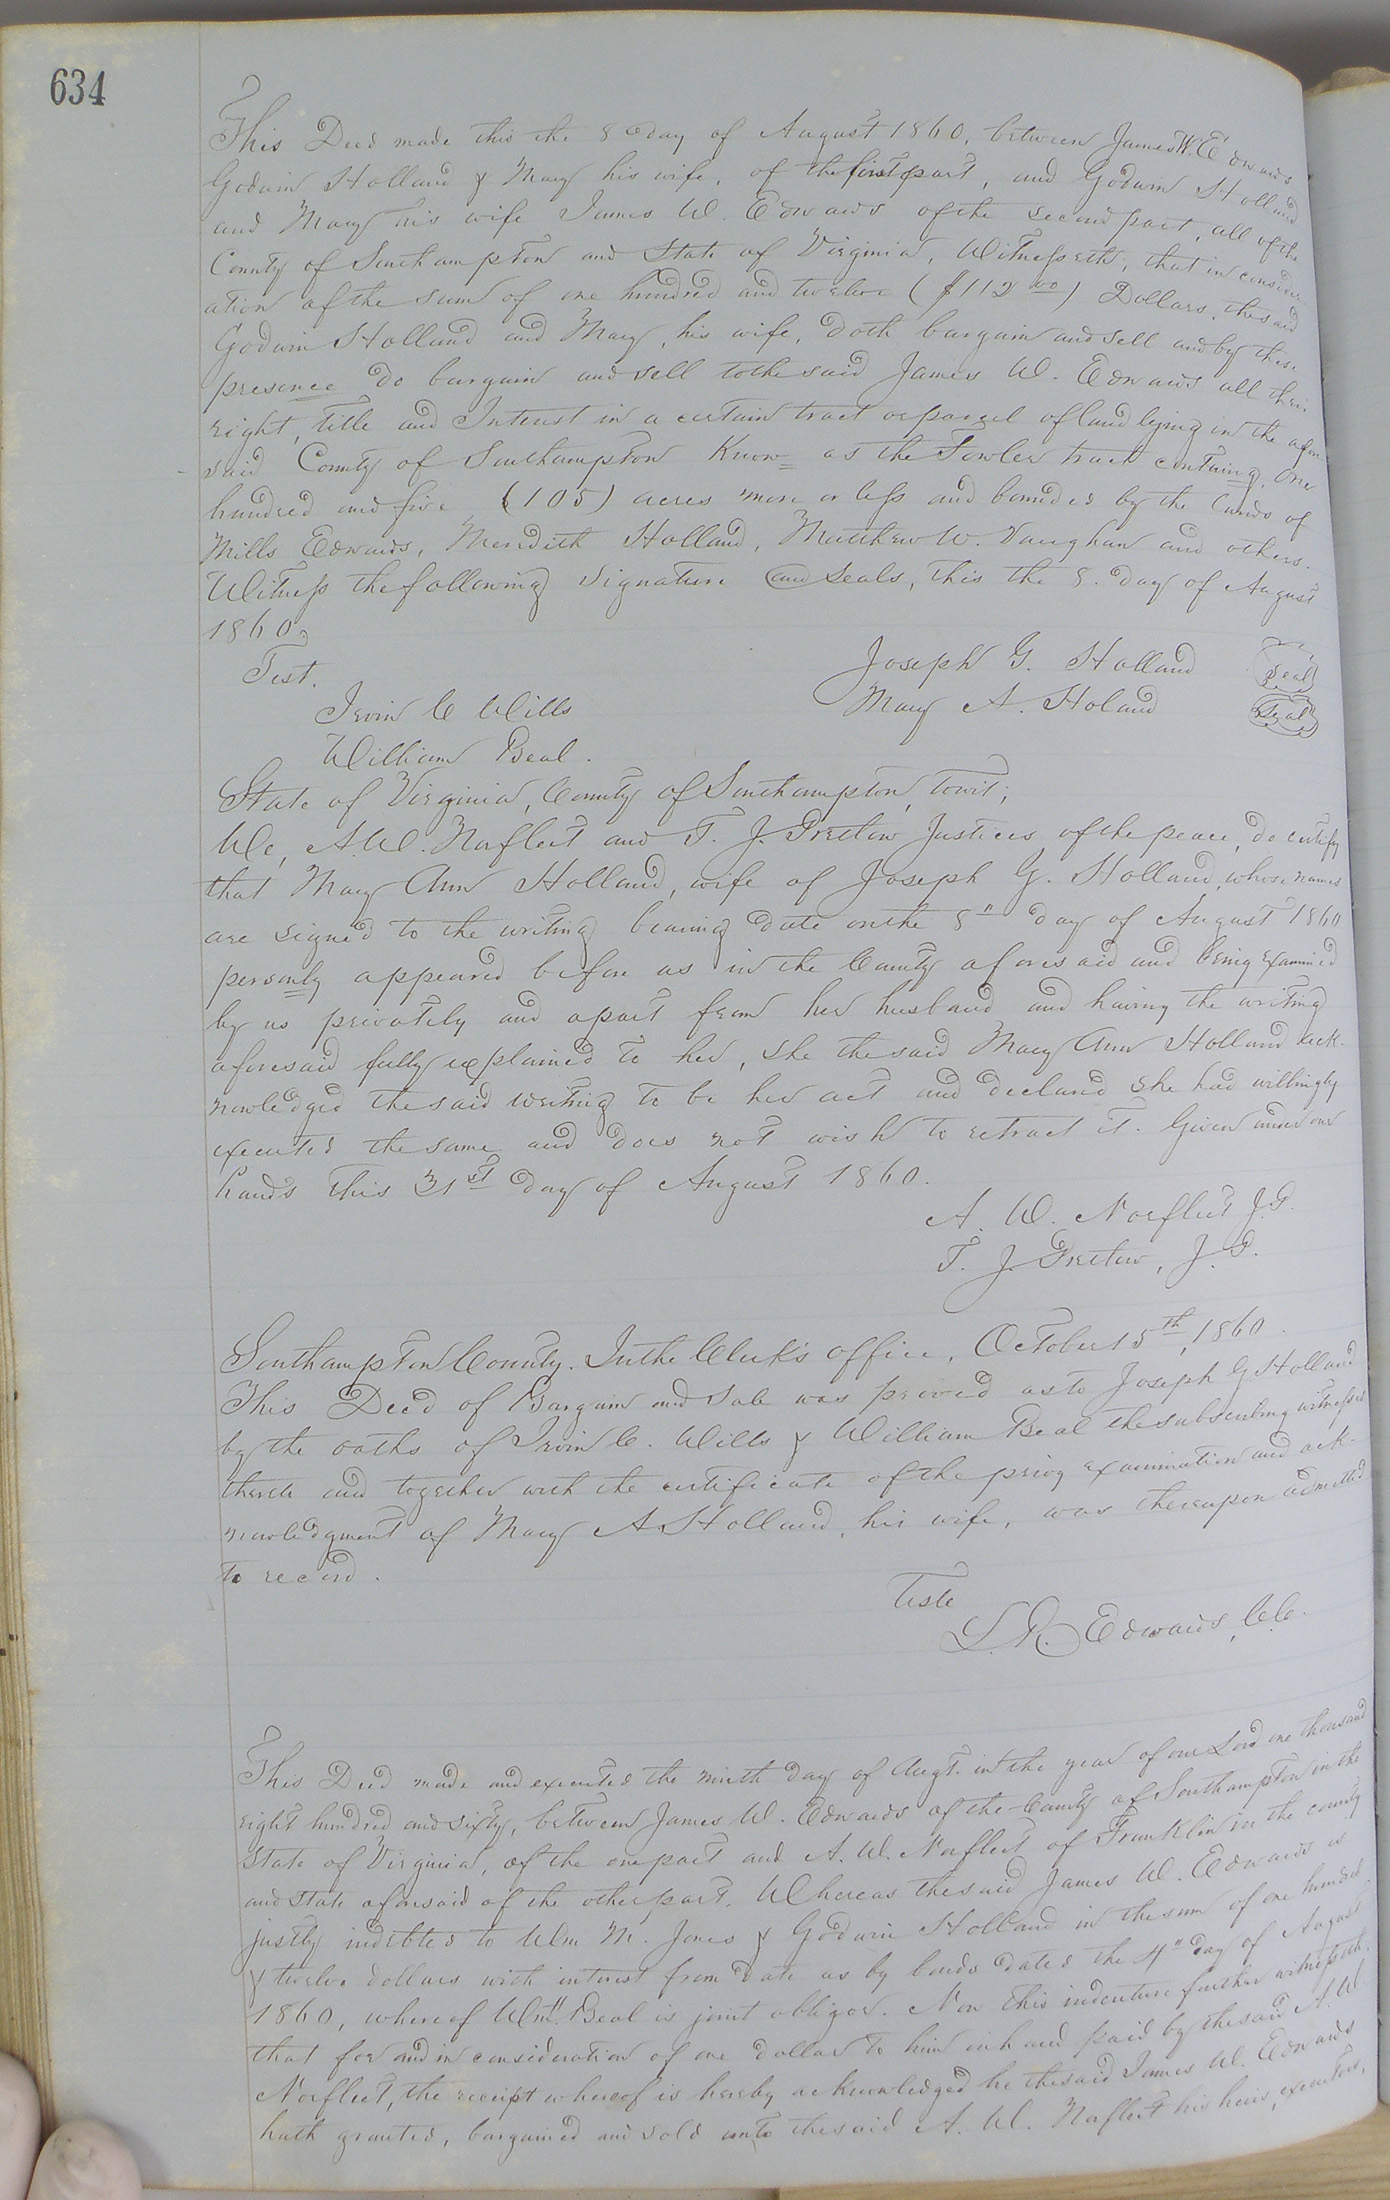 634
This Deed made this the 8 day of August 1860, between James W. Edwards
Godwin Holland & Mary his wife, of the first part, and Godwin Holland
and Mary his wife James W. Edwards of the second part, all of the
County of Southampton and State of Virginia, Witnesseth; that in consider-
ation of the sum of one hundred and twelve ($112 00) Dollars, the said
Godwin Holland and Mary, his wife, doth bargain and sell and by these
presence do bargain and sell to the said James W. Edwards all their
right, title and Interest in a certain tract or parcel of land lying in the afore
said County of Southampton Know as the Fowler tract contuing, One
hundred and five (105) acres more or less and bounded by the lands of
Mills Edwards, Meredith Holland, Matthew W. Vaughan and others.
Witness the following signature and seals, this the 8. day of August
1860.
Test.
Joseph G. Holland Seal
Mary A. Holand Seal
Irvin C Wills
William Beal.
State of Virginia, County of Southampton, towit;
We, A. W. Norfleet and T. J. Pretlow Justices of the peace, do certify
that Mary Ann Holland, wife of Joseph G. Holland, whose names
are signed to the writing bearing date on the 8" day of August 1860
personly appeared before us in the County aforesaid and being examined
by us privately and apart from her husband and having the writing
aforesaid fully explained to her, she the said Mary Ann Holland ack-
nowledged the said writing to be her act and declared she had willingly
executed the same and does not wish to retract it. Given under our
hands this 31st day of August 1860.
A. W. Norfleet J.P.
T. J. Pretlow, J. P.
Southampton County. In the Clerk's office, October 15th, 1860.
This Deed of Bargain and Sale was proved as to Joseph G Holland
by the oaths of Irvin C. Wills & William Beal the subscribing witnesses
thereto and together with the certificate of the privy examination and ack-
nowledgment of Mary A Holland, his wife, was thereupon admitted
to record.
Teste
L. R. Edwards, C.C.
This Deed made and executed the ninth day of Augt. in the year of our Lord one thousand
eight hundred and sixty, between James W. Edwards of the County of Southampton in the
State of Virginia, of the one part and A. W. Norfleet of Franklin in the county
and State aforesaid of the other part. Whereas the said James W. Edwards is
justly indebted to Wm M. Jones & Godwin Holland in the sum of one hundred
& twelve dollars with interest from date as by bonds dated the 4" day of August
1860, whereof Wm. Beal is joint obligor. Now this indenture further witnesseth,
that for and in consideration of one dollar to him in hand paid by the said A. W.
Norfleet, the receipt whereof is hereby acknowledged he the said James W. Edwards
hath granted, bargained and sold unto the said A. W. Norfleet his heirs, executors,